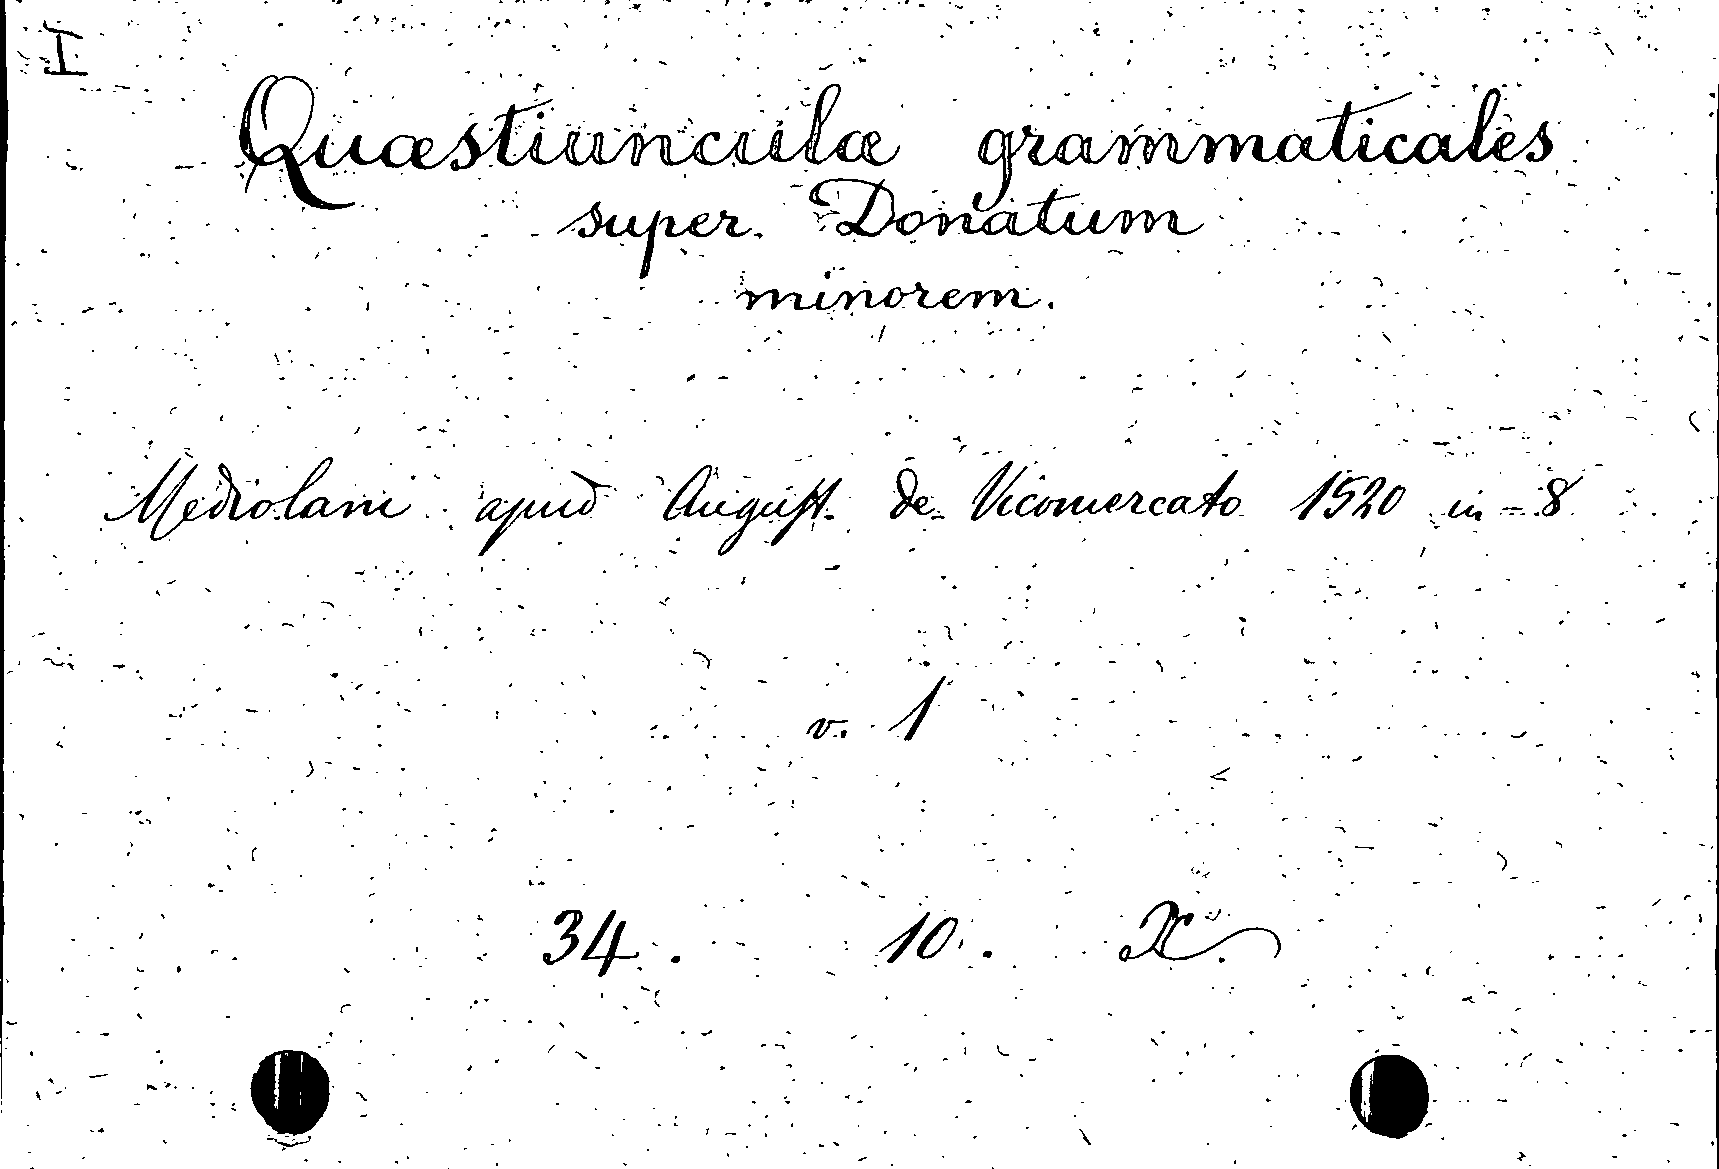 I
Quæstiunculæ grammaticales
super Donatum
minorem.
Mediolani apud August. de Vicomercato 1520 in-8
v. 1
34. 10. X.